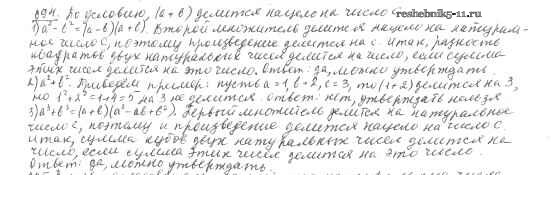 894. По условию, (a + b) делится нацело на число c.
reshebnik5-11.ru
1) a² - b² = (a - b)(a + b). Второй множитель делится нацело на натураль-
ное число c, поэтому произведение делится на c. Итак, разность
квадратов двух натуральных чисел делится на число, если сумма
этих чисел делится на это число. Ответ: да, можно утверждать.
2) a² + b². Приведём пример: пусть a = 1, b = 2, c = 3, то (1 + 2) делится на 3,
но 1² + 2² = 1 + 4 = 5 на 3 не делится. Ответ: нет, утверждать нельзя
3) a³ + b³ = (a + b)(a² - ab + b²). Первый множитель делится на натуральное
число c, поэтому и произведение делится нацело на число c.
Итак, сумма кубов двух натуральных чисел делится на
число, если сумма этих чисел делится на это число.
Ответ: да, можно утверждать.